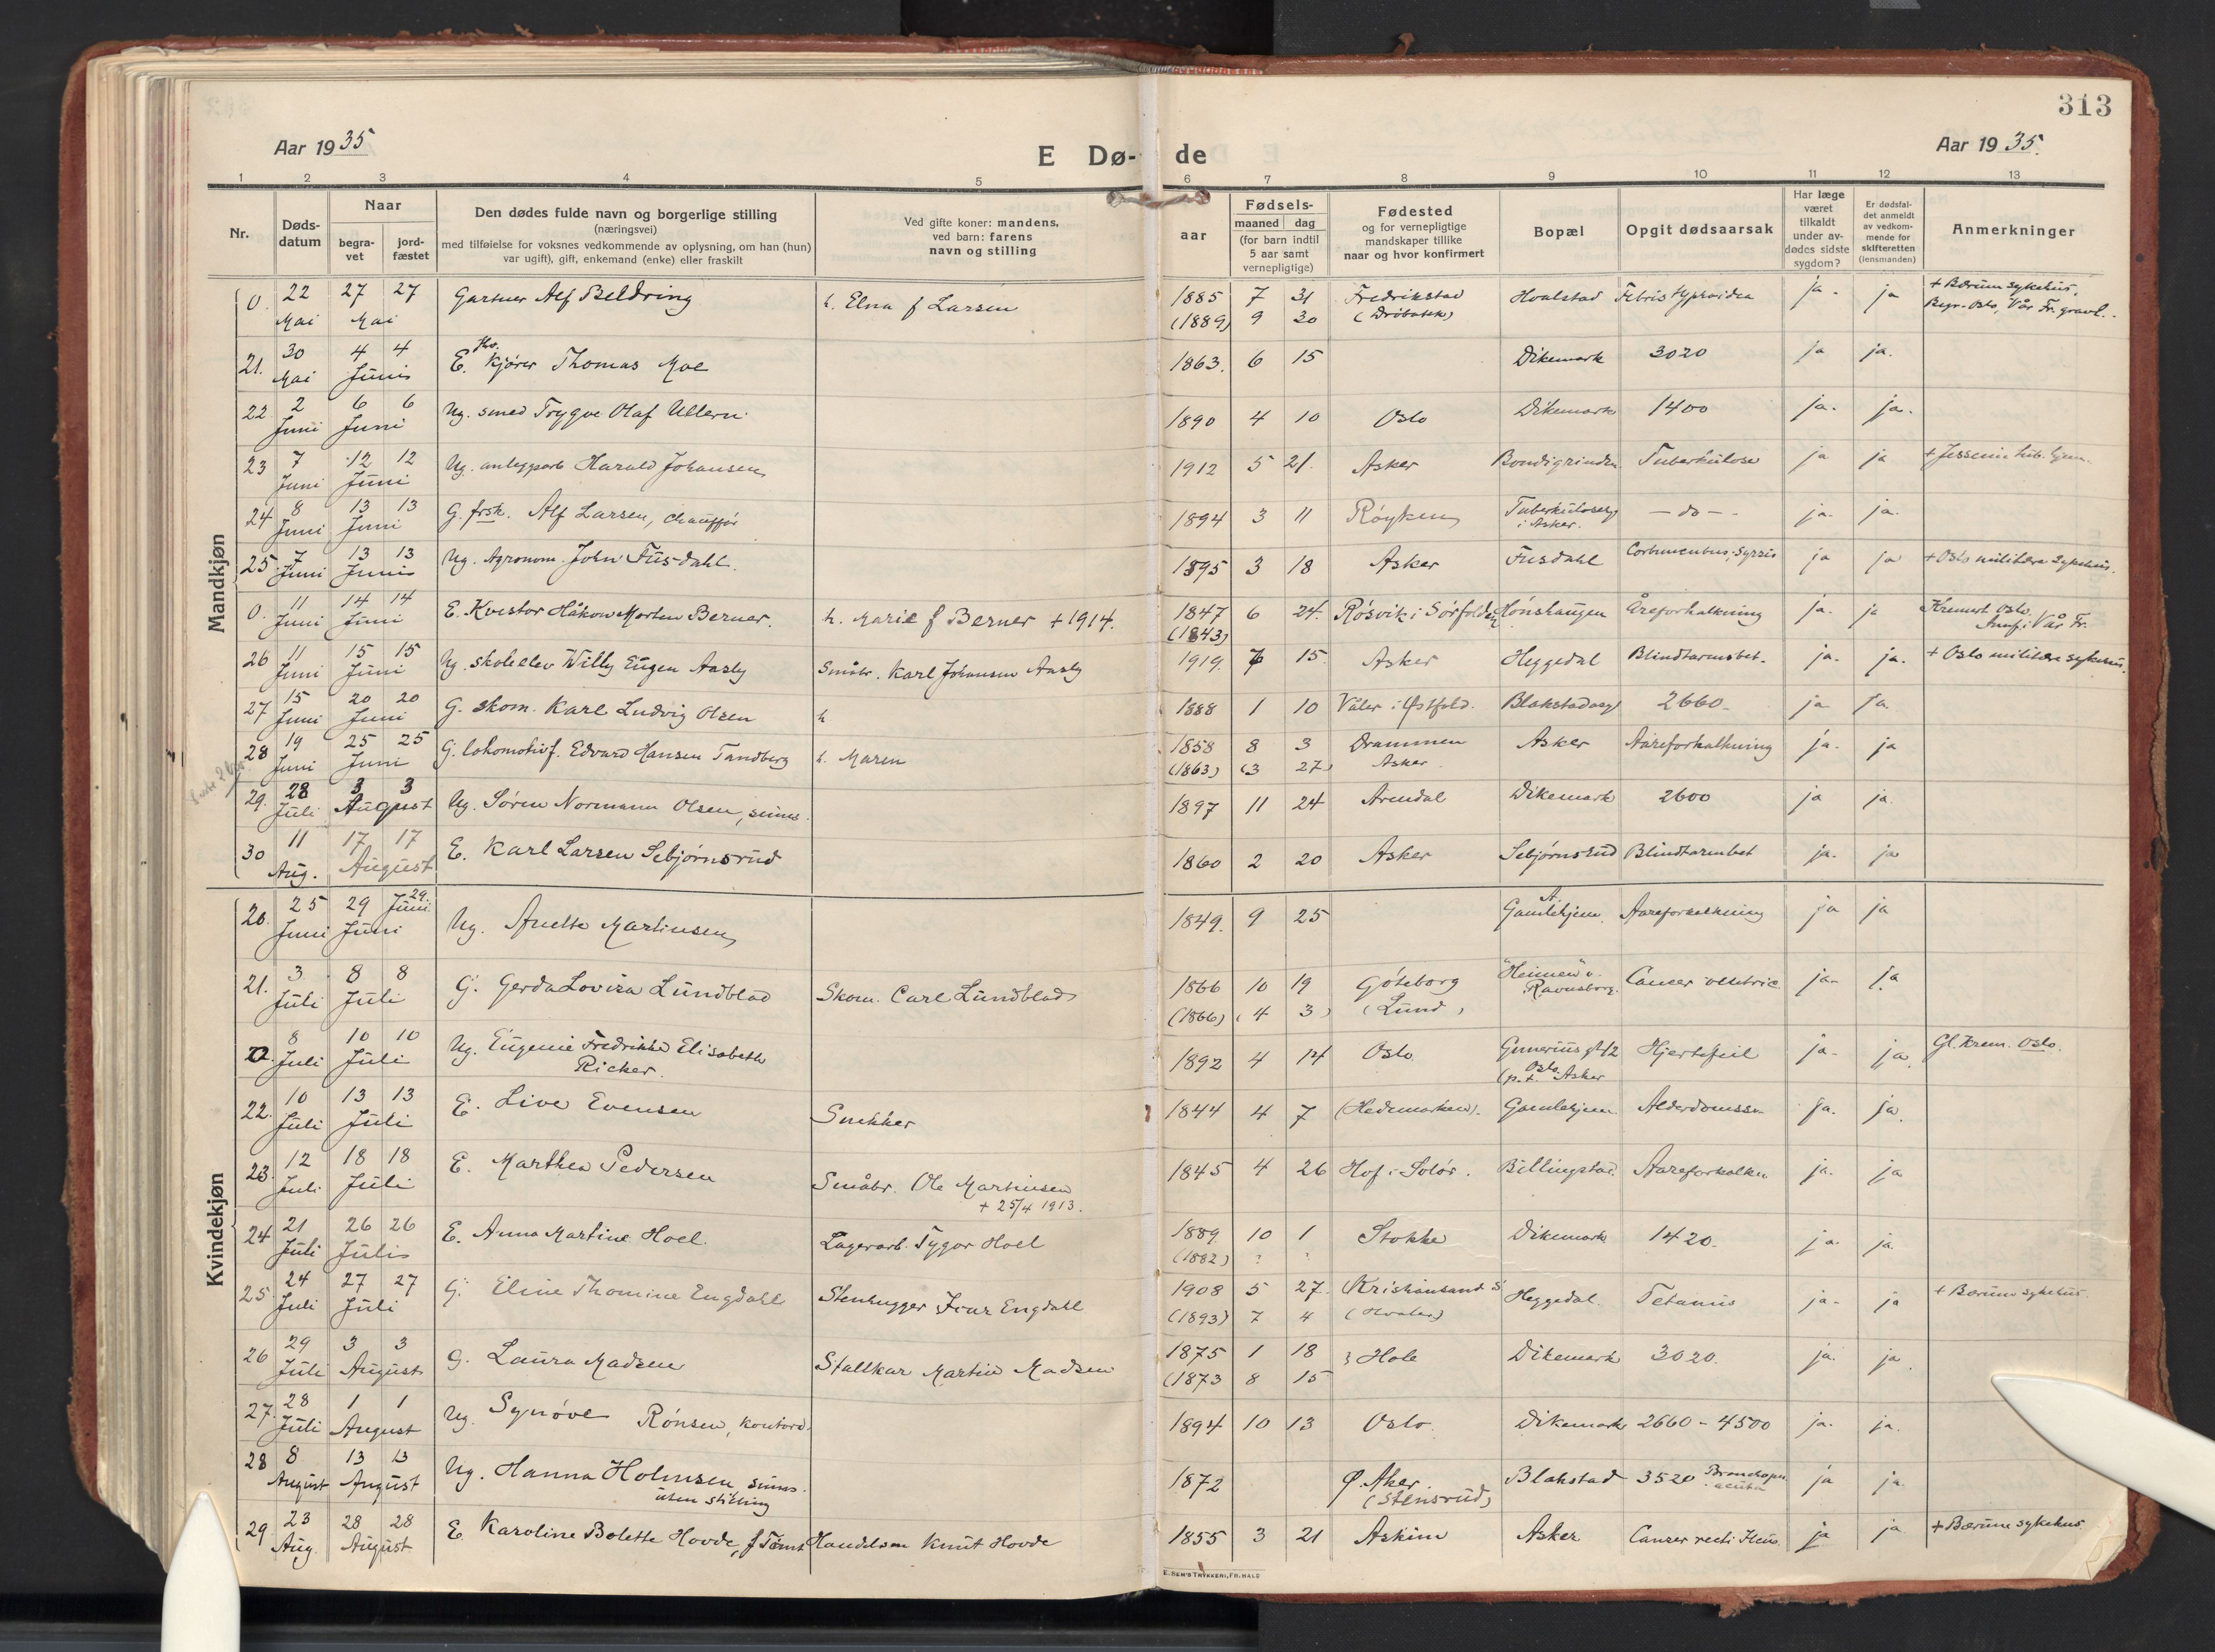 313
Aar 1935
E Dø-de
Aar 1935.
1 2 3 4 5 6 7 8 9 10 11 12 13
Nr.
Døds-datum
Naar
begra-vet
jord-fæstet
Den dødes fulde navn og borgerlige stilling
(næringsvei)
med tilføielse for voksnes vedkommende av oplysning, om han (hun)
var ugift), gift, enkemand (enke) eller fraskilt
Ved gifte koner: mandens,
ved barn: farens
navn og stilling
aar
Fødsels-
maaned dag
(for barn indtil
5 aar samt
vernepligtige)
Fødested
og for vernepligtige
mandskaper tillike
naar og hvor konfirmert
Bopæl
Opgit dødsaarsak
Har læge
været
tilkaldt
under av-
dødes sidste
sygdom?
Er dødsfal-
det anmeldt
av vedkom-
mende for
skifteretten
(lensmanden)
Anmerkninger
Mandkjøn
0. 22 27 27 Gartner Alf Beldring h. Elna f Larsen 1885 7 31 Fredrikstad Hvalstad Febris typhoidea ja. ja + Bærum sykehus.
Mai Mai (1889) 9 30 (Drøbakk) Begr. Oslo, Vår Fr. gravl.
21. 30 4 4 E. Kjører Thomas Moe 1863. 6 15 Dikemark 3020 ja ja.
Mai Juni
22. 2 6 6 Ug. smed Trygve Olaf Ullern 1890 4 10 Oslo Dikemark 1400 ja. ja.
Juni Juni
23 7 12 12 Ug. anleggsarb Harald Johansen 1912 5 21. Asker Bondigrinden Tuberkulose ja ja + Jessenie tub. hjem.
Juni Juni
24 8 13 13 G. frsk. Alf Larsen, chauffør 1894 3 11 Røyken Tuberkulosehj. - do - ja. ja.
Juni Juni i Asker.
25. 7 13 13 Ug. Agronom. John Fusdahl. 1895 3 18 Asker Fusdahl ja ja + Oslo militære sykehus.
Juni Juni
0. 11 14 14 E. Kvestor Håkon Morten Berner. h. Marie f Berner + 1914. 1847 6 24. Røsvik i Sørfolden Hønshaugen Åreforkalkning ja. ja Kremert Oslo
Juni Juni (1843) Vår Fr.
26 11 15 15 Ug. skoleelev Willy Eugen Aasly Småbr. Karl Johansen Aasly 1919. 7 15. Asker Heggedal Blindtarmsbet. ja. ja. + Oslo militære sykehus.
Juni Juni
27 15 20 20 G. skom. Karl Ludvig Olsen h 1888 1 10 Våler i Østfold. Blakstad asyl 2660 ja ja.
Juni Juni
28 19 25 25 G. lokomotivf. Edvard Hansen Tandberg h. Maren 1858 8 3 Drammen Asker Aareforkalkning ja. ja
Juni Juni (1863) (3 27) Asker
29. 28 3 3 Ug. Søren Normann Olsen, sinns. 1897 11 24 Arendal Dikemark 2600 ja ja.
Juli August
30 11 17 17 E. Karl Larsen Sebjørnsrud 1860 2 20 Asker Sebjørnsrud Blindtarmbet ja. ja
Aug. August
Kvindekjøn
20. 25 29 29. Ug. Anette Martinsen 1849. 9 25 A. Gamlehjem. Aareforkalkning ja ja
Juni Juni Juni.
21. 3 8 8 G. Gerda Lovisa Lundblad Skom. Carl Lundblad 1866 10 19 Göteborg "Heimen" v. Cancer ventric. ja. ja
Juli Juli (1866) (4 3) (Lund) Ravnsborg.
22. 8 10 10 Ug. Eugenie Fredrikke Elisabeth 1892 4 14 Oslo Hjertefeil ja. ja. Gl. Krem. Oslo.
Juli Juli Ricker. Oslo (p.t. Asker
22. 10 13 13 E. Live Evensen Snekker 1844 4 7 (Hedemarken). Gamlehjem Alderdomssv. ja. ja.
Juli Juli
23. 12 18 18 E. Marthea Pedersen Småbr. Ole Martinsen 1845 4 26 Hof i Solør. Billingstad. Aareforkalkn ja. ja
Juli Juli + 25/4 1913.
24 21 26 26 E. Anna Martine Hoel Lagerarb. Tygor Hoel 1889. 10 1 Stokke Dikemark 1420. ja. ja.
Juli Juli (1882) ? ?
25. 24 27 27 G. Eline Thomine Engdahl Stenhugger Ivar Engdahl 1908 5 27. Kristiansand S. Heggedal. Tetanus ja. ja + Bærum sykehus.
Juli Juli (1893) 7 4 (Hvaler)
26 29 3 3 G. Laura Madsen Stallkar Martin Madsen 1875 1 18 Hole Dikemark 3020. ja. ja.
Juli August (1873 8 15
27. 28 1 1 Ug. Synøve Rønsen, kontord. 1894 10 13 Oslo. Dikemark 2660 - 4500 ja. ja.
Juli August
28 8 13 13 Ug. Hanna Holmsen, sinns. 1872 Ø. Aker Blakstad 3520 Bronchopn. acuta ja ja.
August August uten stilling (Stensrud)
29 23 28 28 E Karoline Bolette Hovde, Handelsm Knut Hovde 1855 3 21 Askim Asker Cancer recti Ileus. ja ja. + Bærum sykehus
Aug. August